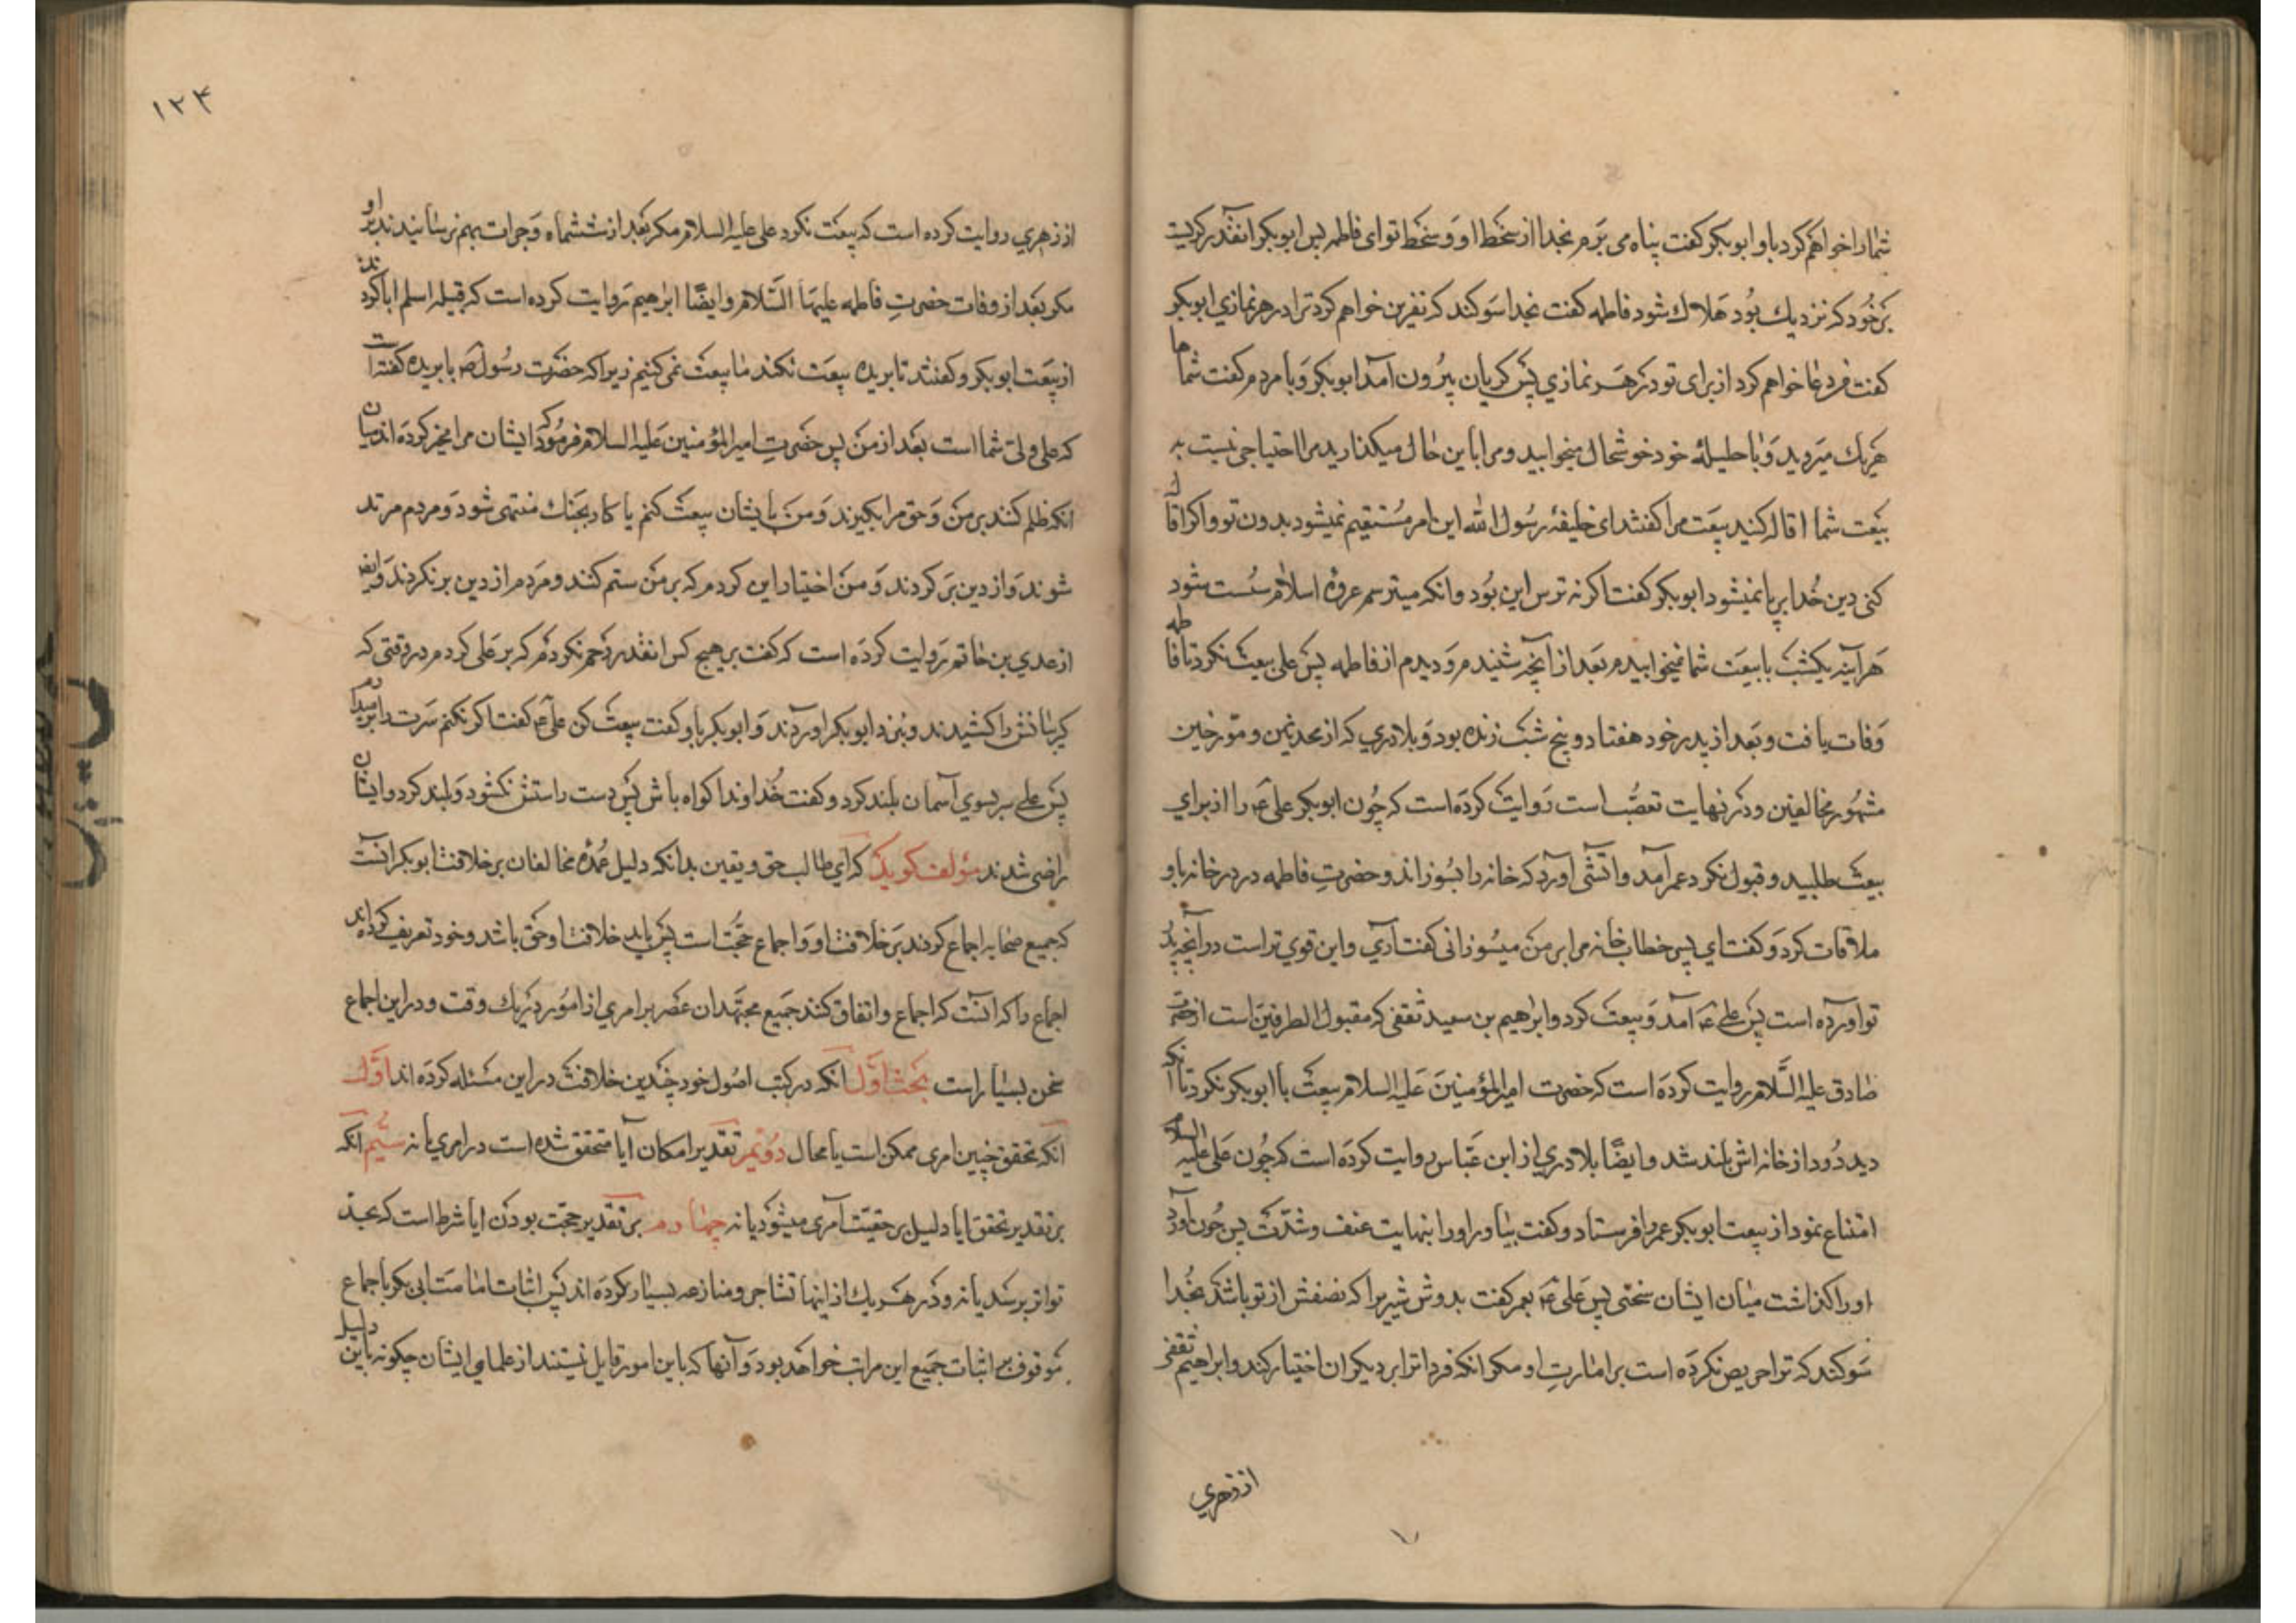 شما را خواهم کرد باو ابوبکر کفت پناه می برم بخدا از سخط او و سخط تو ای فاطمه پس ابوبکر انقدر کریست
بر خود که نزدیک بود هلاک شود فاطمه کفت بخدا سوکند که نفرین خواهم کرد ترا در هر نمازی ابوبکر
کفت فردعا خواهم کرد از برای تو در هر نمازی پس کریان بیرون آمد ابوبکر و با مردم کفت شما ها
هریک میروید و با حلیلهٔ خود خوشحال میخوابید و مرا باین حال میکذارید مرا احتیاجی نیست به
بیعت شما اقاله کنید بیعت مرا کفتند ای خلیفهٔ رسول الله این امر مستقیم نمیشود بدون تو و اکر اقاله
کنی دین خدا برپا نمیشود ابوبکر کفت اکر نه ترس این بود و انکه میترسم عروهٔ اسلام سست شود
هرآینه یکشب با بیعت شما نمیخوابیدم بعد از آنچه شنیدم و دیدم از فاطمه پس علی بیعت نکرد تا فاطمه
وفات یافت و بعد از پدر خود هفتاد و پنج شب زنده بود و بلادری که از محدثین و مورخین
مشهور مخالفین و در نهایت تعصب است روایت کرده است که چون ابوبکر علی ع را از برای
بیعت طلبید و قبول نکرد عمر آمد و اتشی آورد که خانه را بسوزاند و حضرت فاطمه در در خانه باو
ملاقات کرد و کفت ای پسر خطاب خانه مرا بر من میسوزانی کفت آری و این قوی تر است در آنچه پدر
تو اورده است پس علی ع آمد و بیعت کرد و ابراهیم بن سعید ثقفی که مقبول الطرفین است از حضرت
صادق علیه السلام روایت کرده است که حضرت امیرالمؤمنین علیه السلام بیعت با ابوبکر نکرد تا آنکه
دید دود از خانه اش بلند شد و ایضا بلادری از ابن عباس روایت کرده است که چون علی علیه السلام
امتناع نمود از بیعت ابوبکر عمر را فرستاد و کفت بیاور او را بنهایت عنف و شدت پس چون آورد
او را کذاشت میان ایشان سخنی پس علی ع بعمر کفت بدوش شیری را که نصفش از تو باشد بخدا
سوکند که ترا حریص نکرده است بر امارت او مکر انکه فردا ترا بر دیکران اختیار کند و ابراهیم ثقفی
از زهری
۱۲۴
از زهری روایت کرده است که بیعت نکرد علی علیه السلام مکر بعد از ششماه و جرات بهم نرسانیدند بر او
مکر بعد از وفات حضرت فاطمه علیها السلام و ایضا ابراهیم روایت کرده است که قبیله اسلم ابا کردند
از بیعت ابوبکر و کفتند تا بریده بیعت نکند ما بیعت نمی کنیم زیرا که حضرت رسول ص با بریده کفته است
که علی ولی شما است بعد از من پس حضرت امیرالمؤمنین علیه السلام فرمود که ایشان مرا مخیر کرده اند میان
انکه ظلم کنند بر من و حق مرا بکیرند و من با ایشان بیعت کنم یا کار بجنک منتهی شود و مردم مرتد
شوند و از دین بر کردند و من اختیار این کردم که بر من ستم کنند و مردم از دین برنکردند و ایضا
از عدی بن حاتم روایت کرده است که کفت بر هیچ کس انقدر رحم نکردم که بر علی کردم در وقتی که
کریبانش را کشیدند و بنزد ابوبکر اوردند و ابوبکر باو کفت بیعت کن علی ع کفت اکر نکنم سرت را برمیدارم
پس علی سر بسوی آسمان بلند کرد و کفت خداوندا کواه باش پس دست راستش نکشود و بلند کرد و ایشان
راضی شدند مؤلف کوید که ای طالب حق و یقین بدانکه دلیل عمدهٔ مخالفان بر خلافت ابوبکر انست
که جمیع صحابه اجماع کردند بر خلافت او و اجماع حجت است پس باید خلافت او حق باشد و خود تعریف کرده اند
اجماع را که انست که اجماع و اتفاق کنند جمیع مجتهدان عصر بر امری از امور در یک وقت و در این اجماع
سخن بسیار است بحث اول انکه در کتب اصول خود چندین خلافت در این مسئله کرده اند اول
انکه تحقق چنین امری ممکن است یا محال دویم تقدیر امکان آیا متحقق شده است در امری یا نه سیم انکه
بر تقدیر تحقق ایا دلیل بر حقیت آمری میشود یا نه چهارم بر تقدیر حجت بودن ایا شرط است که بحد
تواتر برسد یا نه و در هر یک از اینها تشاجر و منازعه بسیار کرده اند پس اثبات امامت ابی بکر باجماع
موقوف بر اثبات جمیع این مراتب خواهد بود و آنها که باین امور قایل نیستند از علمای ایشان چکونه باین دلیل